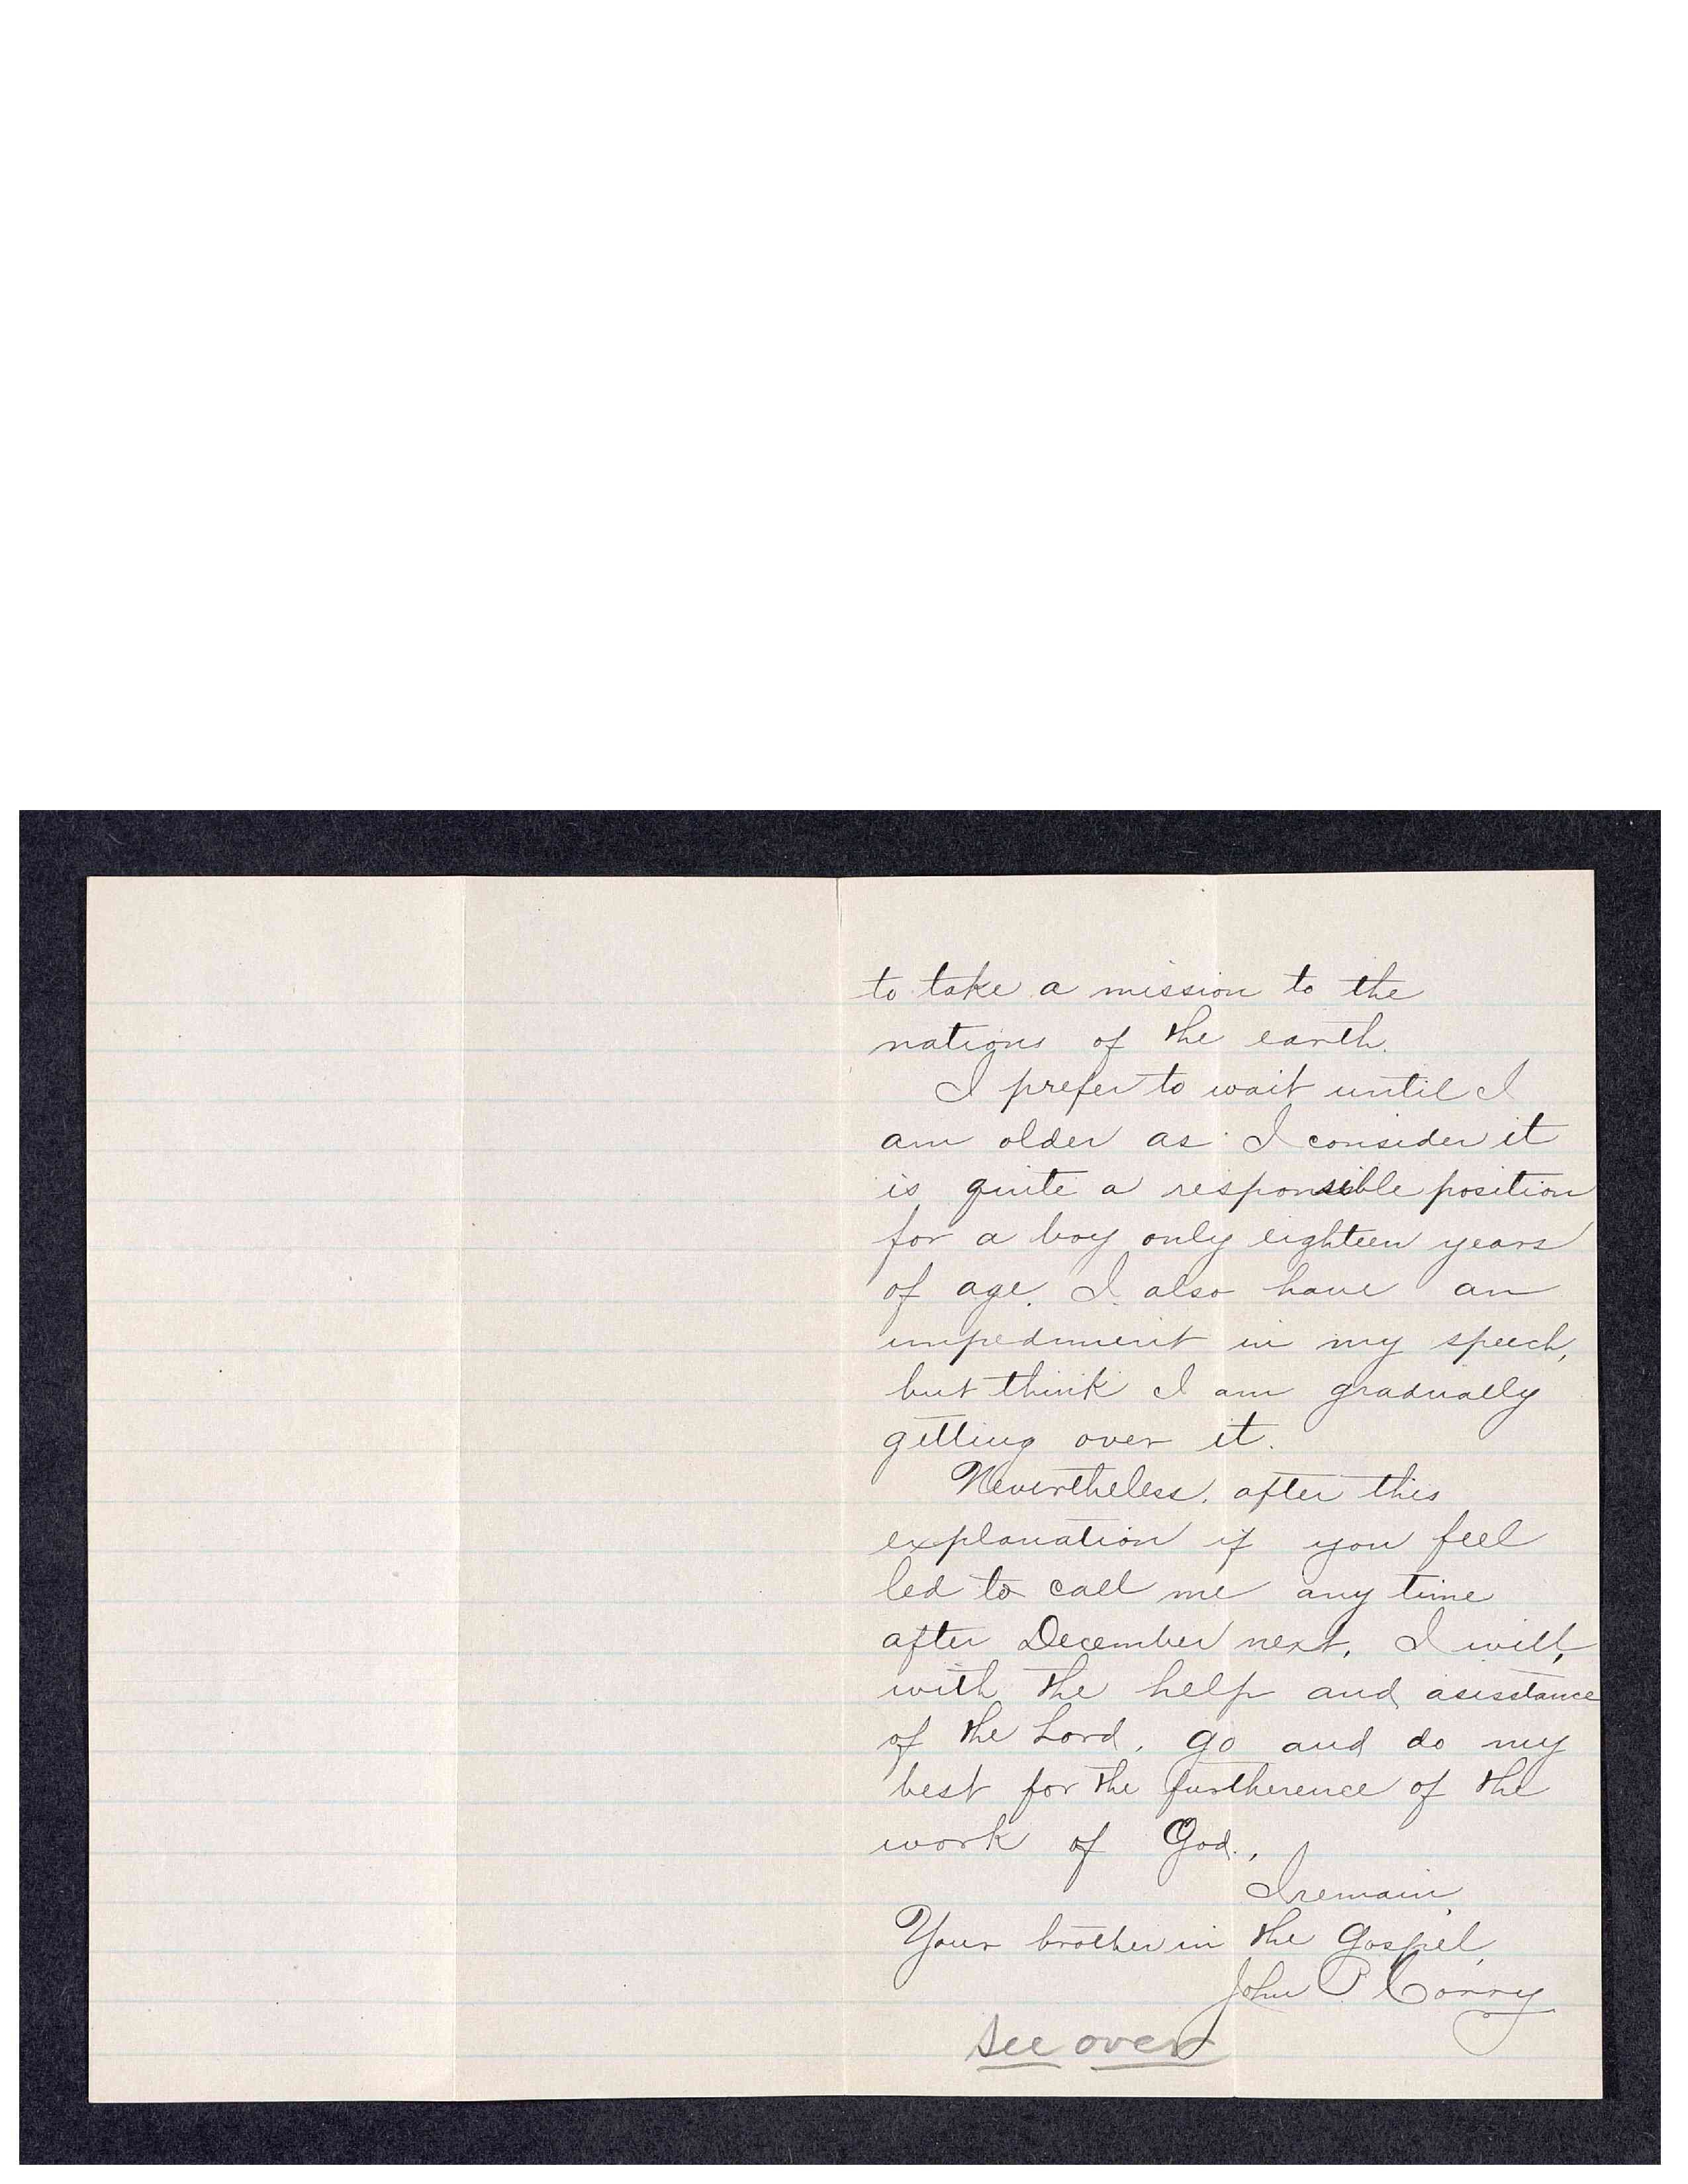 to take a mission to the
nations of the earth.
I prefer to wait until I
am older as I consider it
is quite a responsible position
for a boy only eighteen years
of age. I also have an
impediment in my speech,
but think I am gradually
getting over it.
Nevertheless, after this
explanation if you feel
led to call me any time
after December next, I will,
with the help and asisstance
of the Lord, go and do my
best for the furtherence of the
work of God.,
I remain,
Your brother in the Gospel,
John P Corry
See over